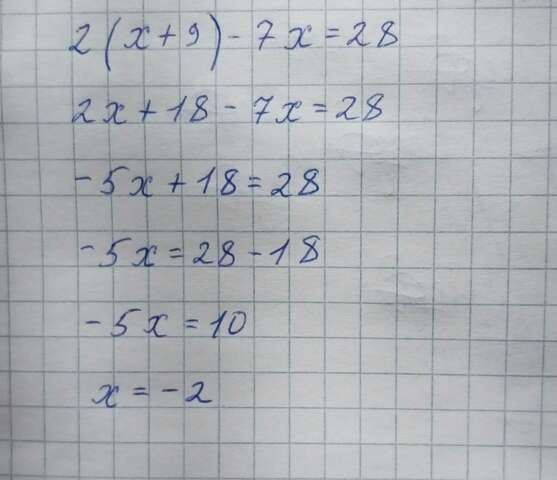 2(x+9)-7x=28
2x+18-7x=28
-5x+18=28
-5x=28-18
-5x=10
x=-2